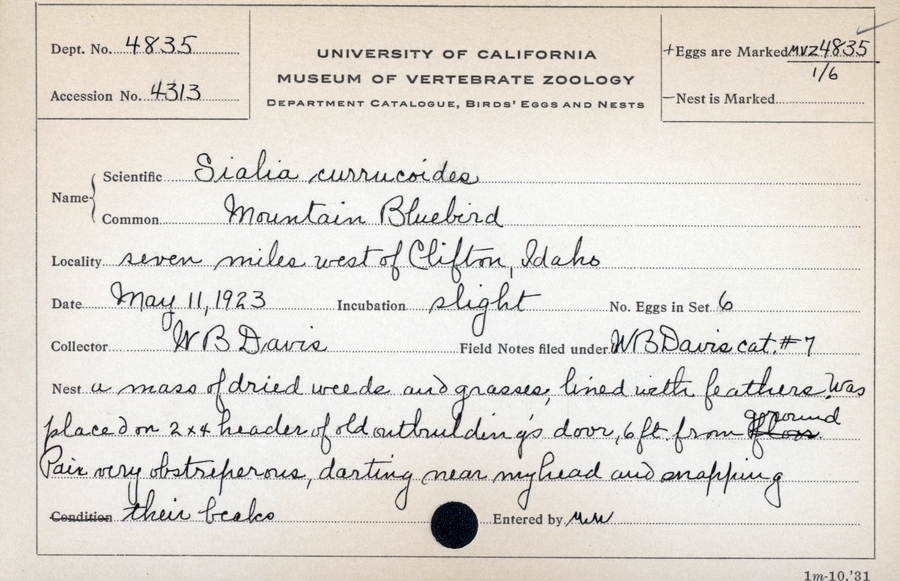 Dept. No. 4835
Accession No. 4313
UNIVERSITY OF CALIFORNIA
MUSEUM OF VERTEBRATE ZOOLOGY
DEPARTMENT CATALOGUE, BIRDS' EGGS AND NESTS
+Eggs are Marked MVZ 4835
1/6
—Nest is Marked
Name { Scientific Sialia currucoides
Common Mountain Bluebird
Locality seven miles west of Clifton, Idaho
Date May 11, 1923 Incubation slight No. Eggs in Set 6
Collector W B Davis Field Notes filed under W B Davis cat. #7
Nest a mass of dried weeds and grasses, lined with feathers. Was
placed on 2x4 header of old outbuilding's door, 6 ft. from floor ground
Pair very obstreperous, darting near my head and snapping
Condition their beaks Entered by
1m-10,'31